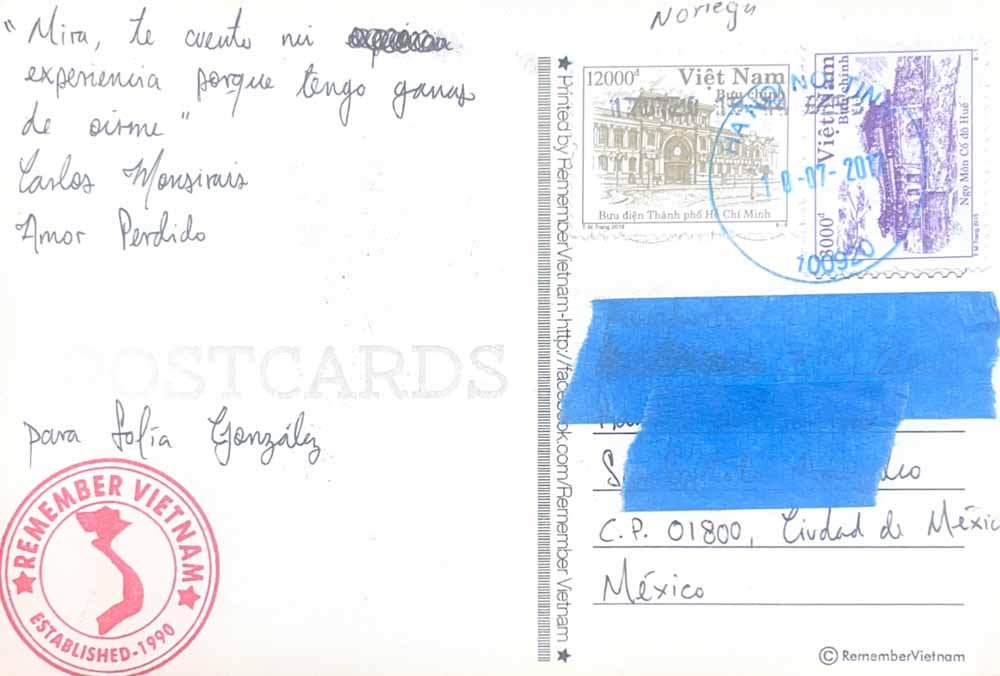 "Mira, te cuento mi
experiencia porque tengo ganas
de oirme"
Carlos Monsivais
Amor Perdido
POSTCARDS
para Sofía González
REMEMBER VIETNAM
ESTABLISHED-1990
★ Printed by RememberVietnam-http://facebook.com/Remember Vietnam ★
Noriega
12000đ Việt Nam
Bưu chính
Bưu điện Thành phố Hồ Chí Minh
T M Trang, 2016
Việt Nam
Bưu chính
3000đ
Ngọ Môn Cố đô Huế
HANOI
-07-2017
100920
C.P. 01800, Ciudad de Méxic
México
© RememberVietnam